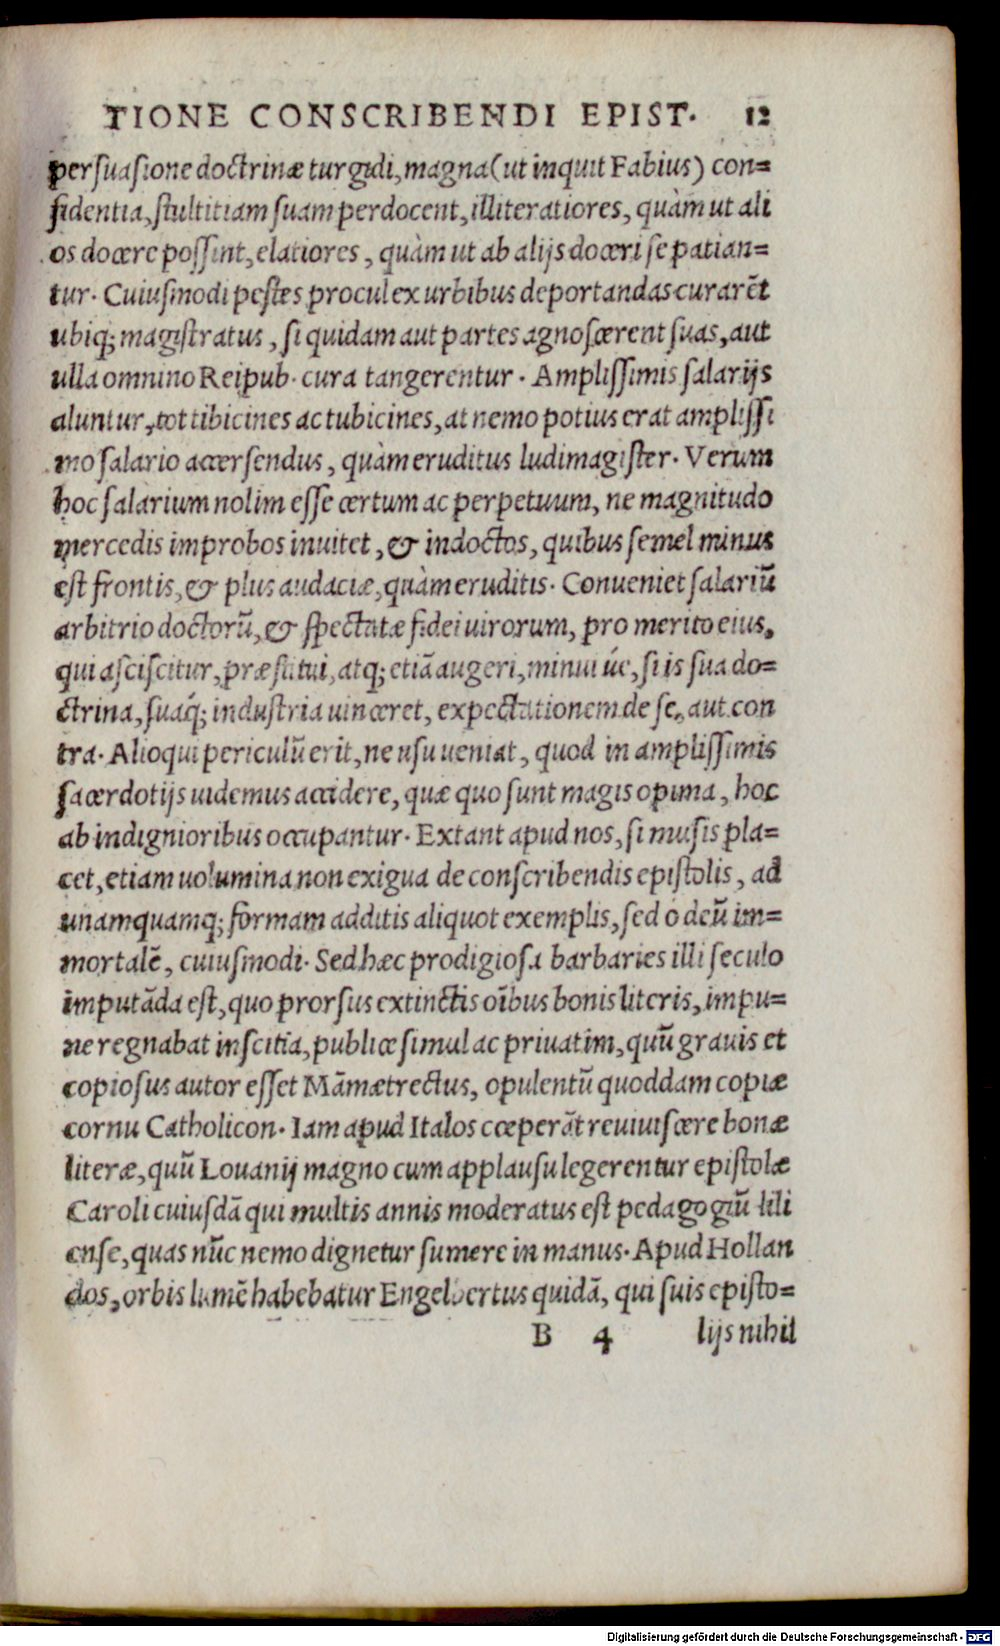 TIONE CONSCRIBENDI EPIST. 12
persuasione doctrinæ turgidi, magna (ut inquit Fabius) con=
fidentia, stultitiam suam perdocent, illiteratiores, quàm ut ali
os docere possint, elatiores, quàm ut ab alijs doceri se patian=
tur. Cuiusmodi pestes procul ex urbibus deportandas curarẽt
ubiq; magistratus, si quidam aut partes agnoscerent suas, aut
ulla omnino Reipub. cura tangerentur. Amplissimis salarijs
aluntur, tot tibicines ac tubicines, at nemo potius erat amplissi
mo salario accersendus, quàm eruditus ludimagister. Verum
hoc salarium nolim esse certum ac perpetuum, ne magnitudo
mercedis improbos inuitet, & indoctos, quibus semel minus
est frontis, & plus audaciæ, quàm eruditis. Conueniet salariũ
arbitrio doctorũ, & spectatæ fidei uirorum, pro merito eius,
qui asciscitur, præstitui, atq; etiã augeri, minui úe, si is sua do=
ctrina, suaq́; industria uinceret, expectationem de se, aut con
tra. Alioqui periculũ erit, ne usu ueniat, quod in amplissimis
sacerdotijs uidemus accidere, quæ quo sunt magis opima, hoc
ab indignioribus occupantur. Extant apud nos, si musis pla=
cet, etiam uolumina non exigua de conscribendis epistolis, ad
unamquamq; formam additis aliquot exemplis, sed ò deũ im=
mortalẽ, cuiusmodi. Sed hæc prodigiosa barbaries illi seculo
imputãda est, quo prorsus extinctis oĩbus bonis literis, impu=
ne regnabat inscitia, publice simul ac priuatim, quũ grauis et
copiosus autor esset Mãmætrectus, opulentũ quoddam copiæ
cornu Catholicon. Iam apud Italos cœperãt reuiuiscere bonæ
literæ, quũ Louanij magno cum applausu legerentur epistolæ
Caroli cuiusdã qui multis annis moderatus est pedagogiũ lili
ense, quas nũc nemo dignetur sumere in manus. Apud Hollan
dos, orbis lumẽ habebatur Engelbertus quidã, qui suis episto=
B 4 lijs nihil
Digitalisierung gefördert durch die Deutsche Forschungsgemeinschaft - DFG